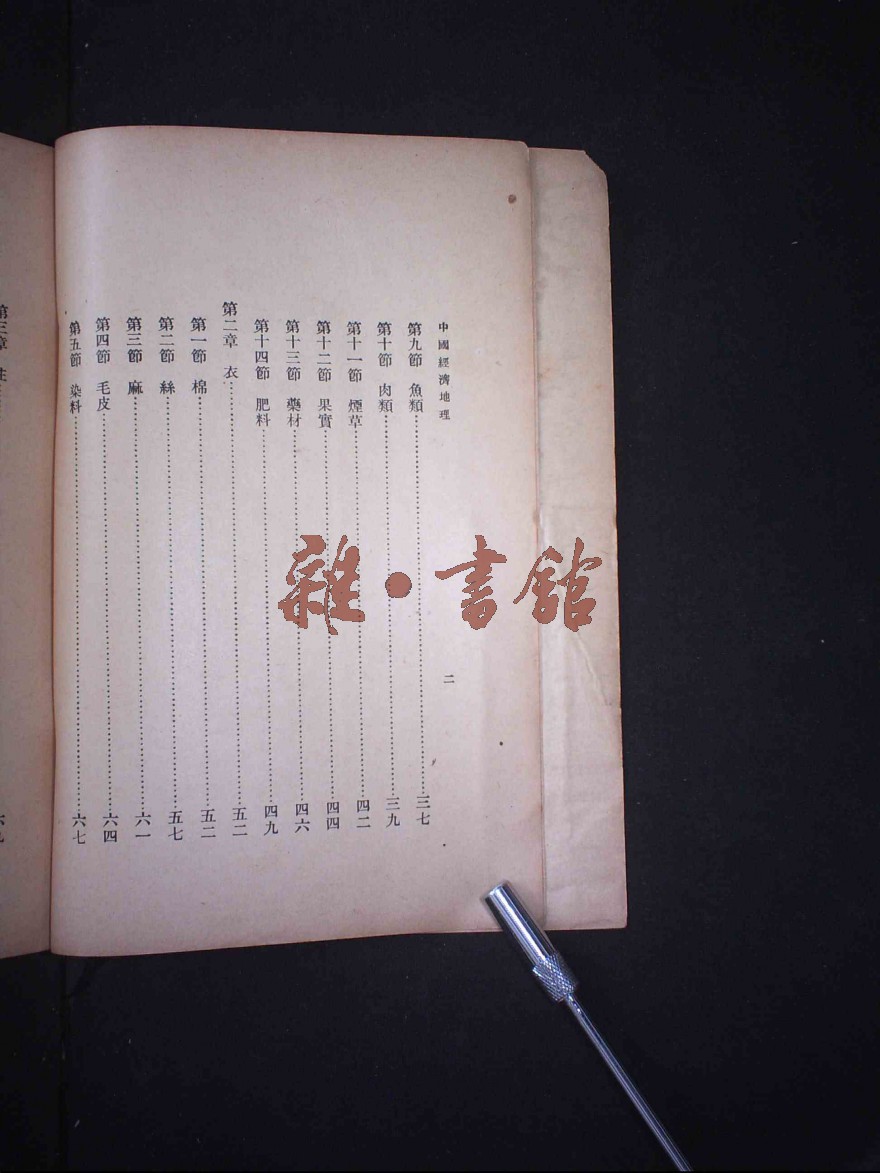 中國經濟地理
二
第九節 魚類……三七
第十節 肉類……三九
第十一節 煙草……四二
第十二節 果實……四四
第十三節 藥材……四六
第十四節 肥料……四九
第二章 衣……五二
第一節 棉……五二
第二節 絲……五七
第三節 麻……六一
第四節 毛皮……六四
第五節 染料……六七
第三章
雜·書館